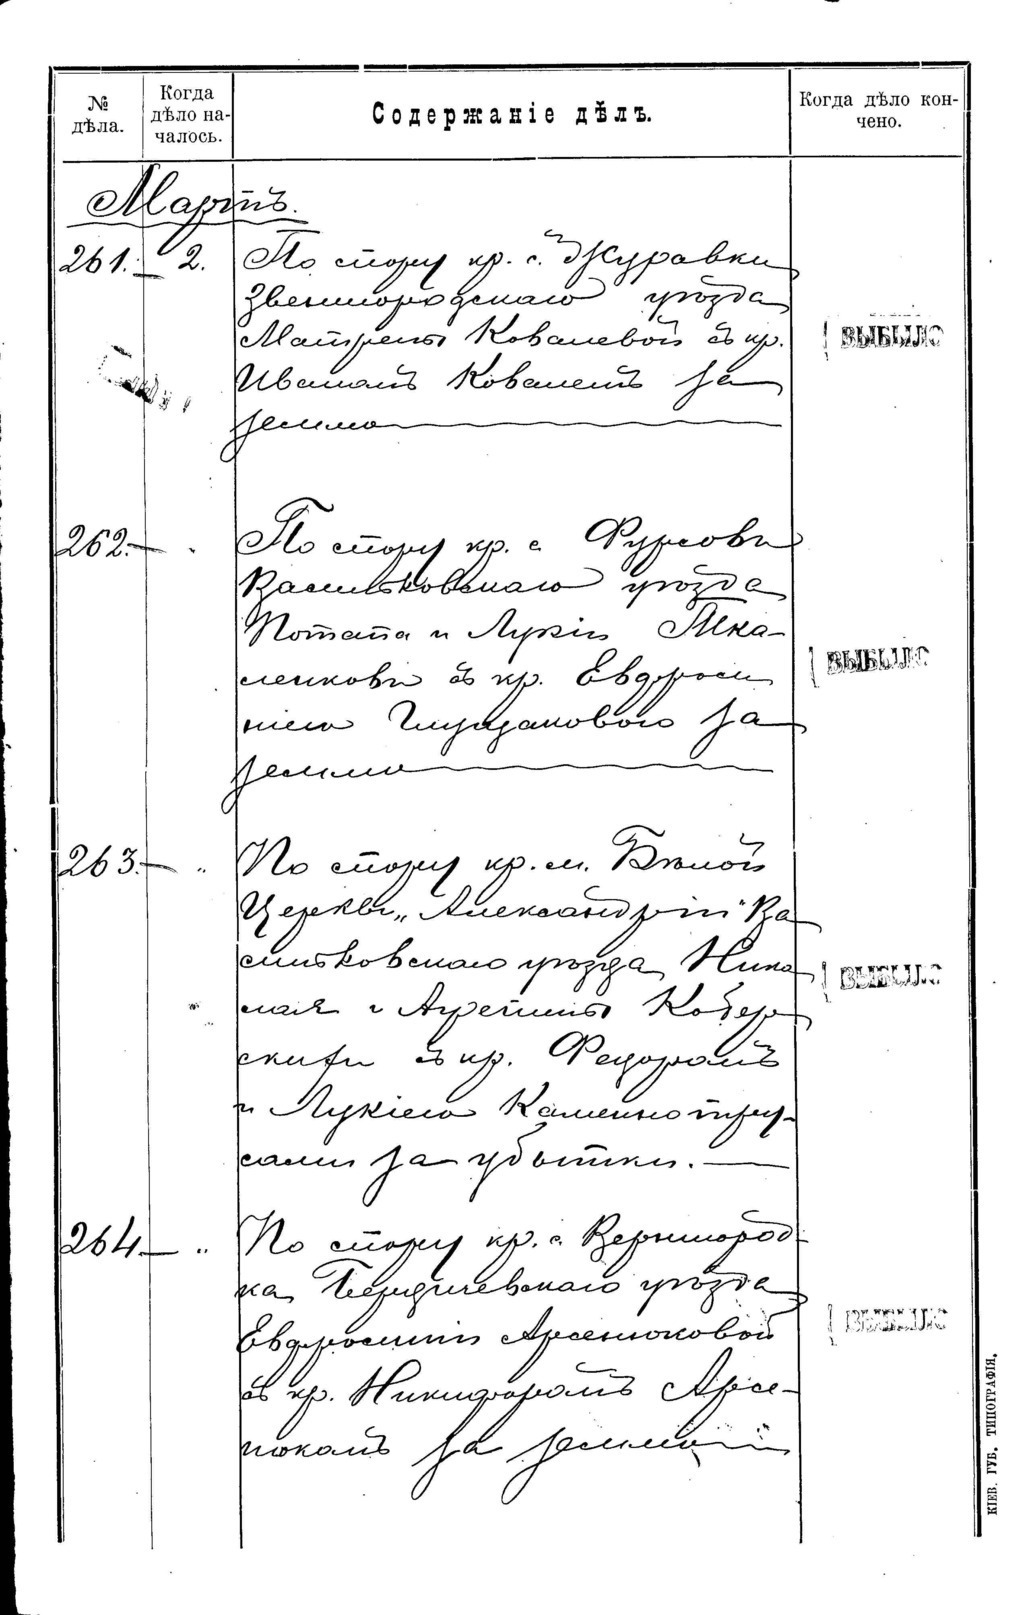 № дѣла.
Когда дѣло началось.
Содержаніе дѣлъ.
Когда дѣло кончено.
Мартъ.
261. 2. По спору кр. с. Журавки
Звенигородскаго уѣзда
Матрены Ковалевой съ кр.
ВЫБЫЛО
Иваномъ Ковалемъ за
землю
262. „ По спору кр. с. Фурсовъ
Васильковскаго уѣзда
Потапа и Лукіи Тка-
ленковъ съ кр. Евдроси
ВЫБЫЛО
ніею за
землю
263. „ По спору кр. м. Бѣлой
Церкви „Александріи" Ва
сильковскаго уѣзда Нико
ВЫБЫЛО
лая и Агрепины Кобер
скихъ съ кр. Федоромъ
и Лукіею Каменнотру-
сами за убытки.
264. „ По спору кр. с Вернигород-
ка Бердичевскаго уѣзда
Евдросиніи Арсенюковой
ВЫБЫЛО
съ кр. Никифоромъ Арсе-
нюкомъ за землю
КІЕВ. ГУБ. ТИПОГРАФІЯ.